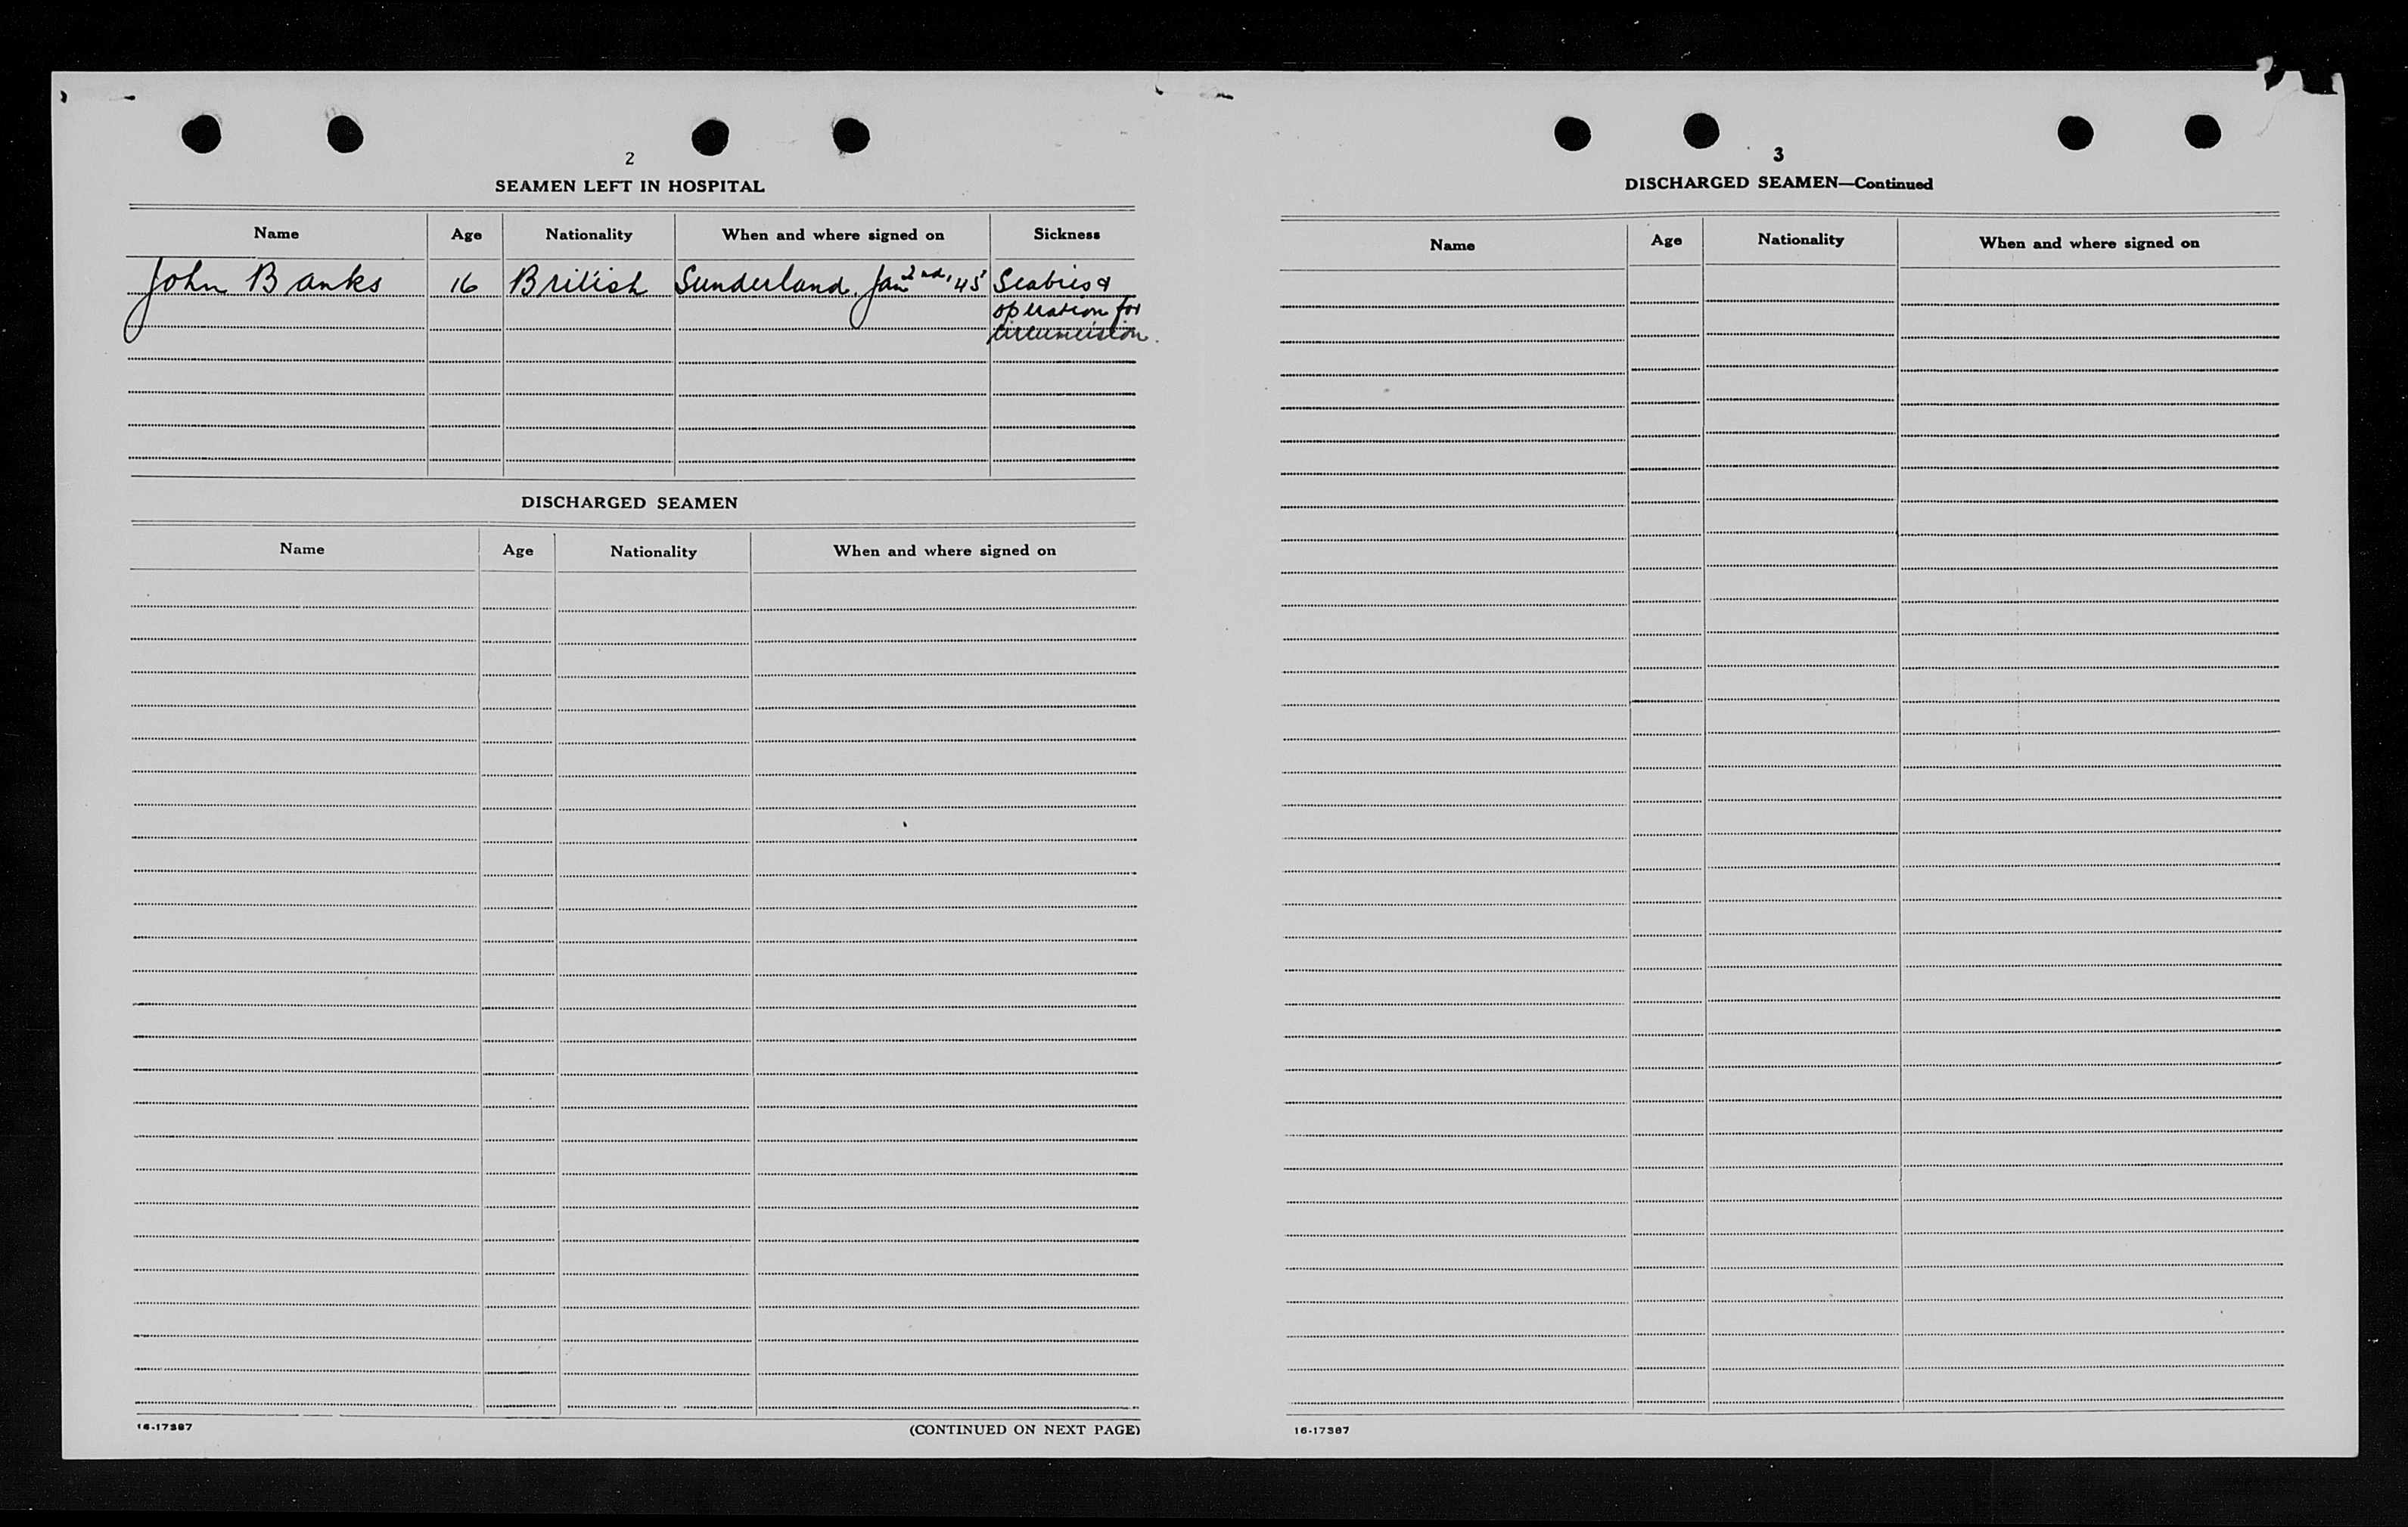 2
SEAMEN LEFT IN HOSPITAL
Name Age Nationality When and where signed on Sickness
John Banks 16 British Sunderland. Jan 2nd, '45 Scabies &
operation for
circumcision.
DISCHARGED SEAMEN
Name Age Nationality When and where signed on
16-17387 (CONTINUED ON NEXT PAGE)
3
DISCHARGED SEAMEN—Continued
Name Age Nationality When and where signed on
16-17387